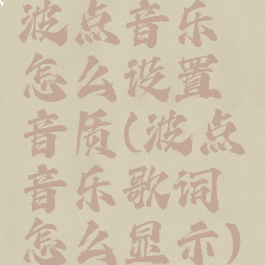 波点音乐
怎么设置
音质(波点
音乐歌词
怎么显示)